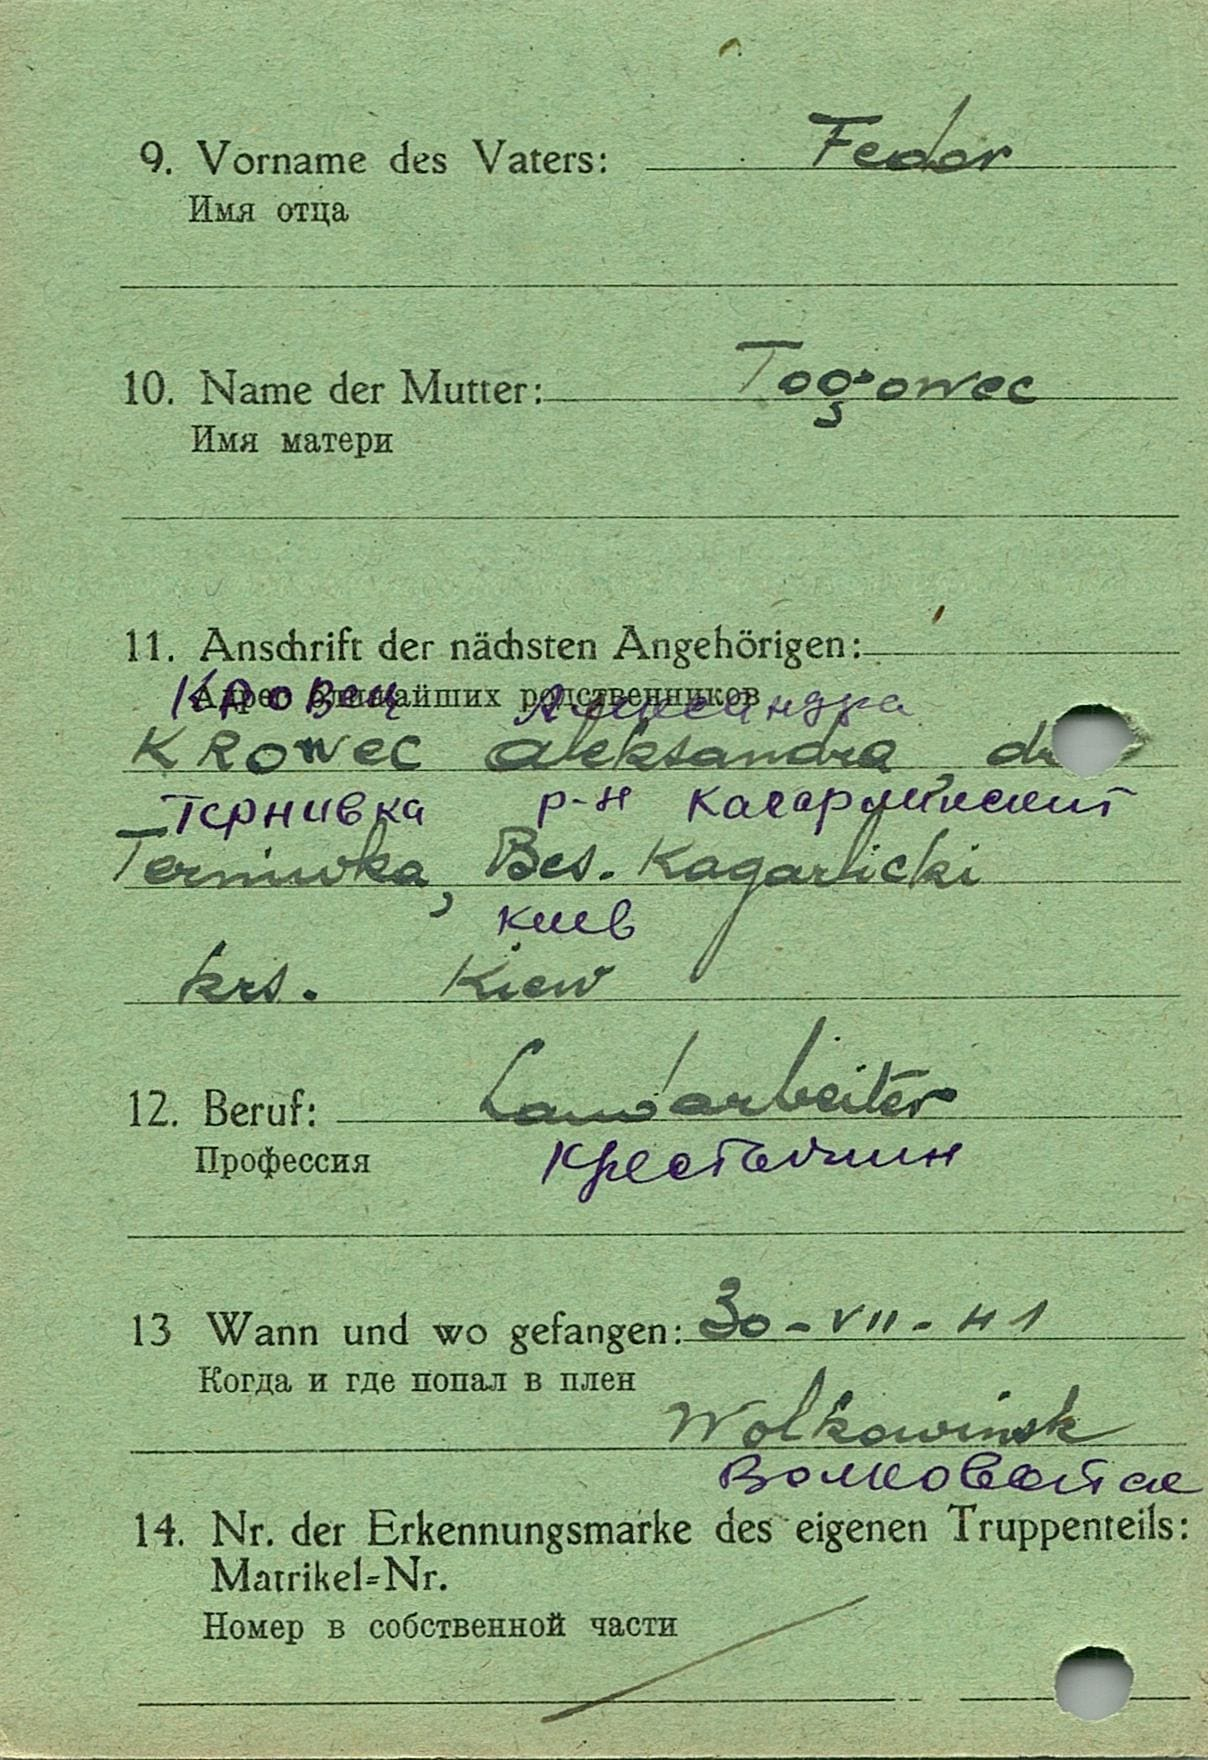 9. Vorname des Vaters: Fedor
Имя отца
10. Name der Mutter: Togowec
Имя матери
11. Anschrift der nächsten Angehörigen:
Адрес ближайших родственников
Кровец Александра
KROWEC Aleksandra,
Тернивка р-н Кагарлинский
Terniwka, Bes. Kagarlicki
Киев
krs. Kiew
12. Beruf: Landarbeiter
Профессия Крестьянин
13 Wann und wo gefangen: 30-VII-41
Когда и где попал в плен
Wolkowinsk
14. Nr. der Erkennungsmarke des eigenen Truppenteils:
Matrikel=Nr.
Номер в собственной части